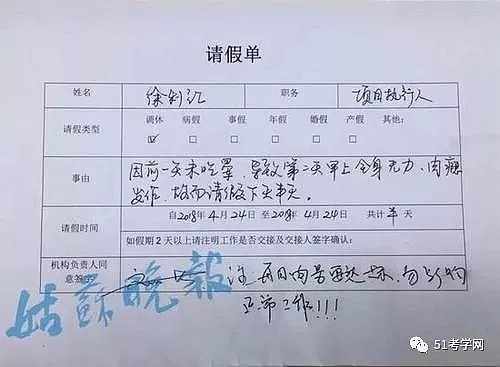 请假单
姓名 徐剑江 职务 项目执行人
请假类型 调休 病假 事假 年假 婚假 产假 其他:
事由 因前一天未吃荤,导致第二天早上全身无力、肉瘾
发作,故而请假下午半天。
请假时间 自2018年4月24日至2018年4月24日 共计半天
如假期2天以上请注明工作是否交接及交接人签字确认:
机构负责人同意签字 注 每日肉量要达标,勿影响
正常工作!!!
姑苏晚报
51考学网